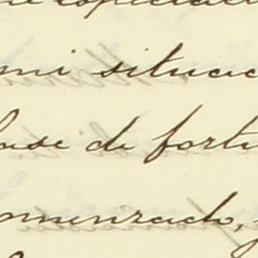 mi situac
ase de fortu
omenzado,